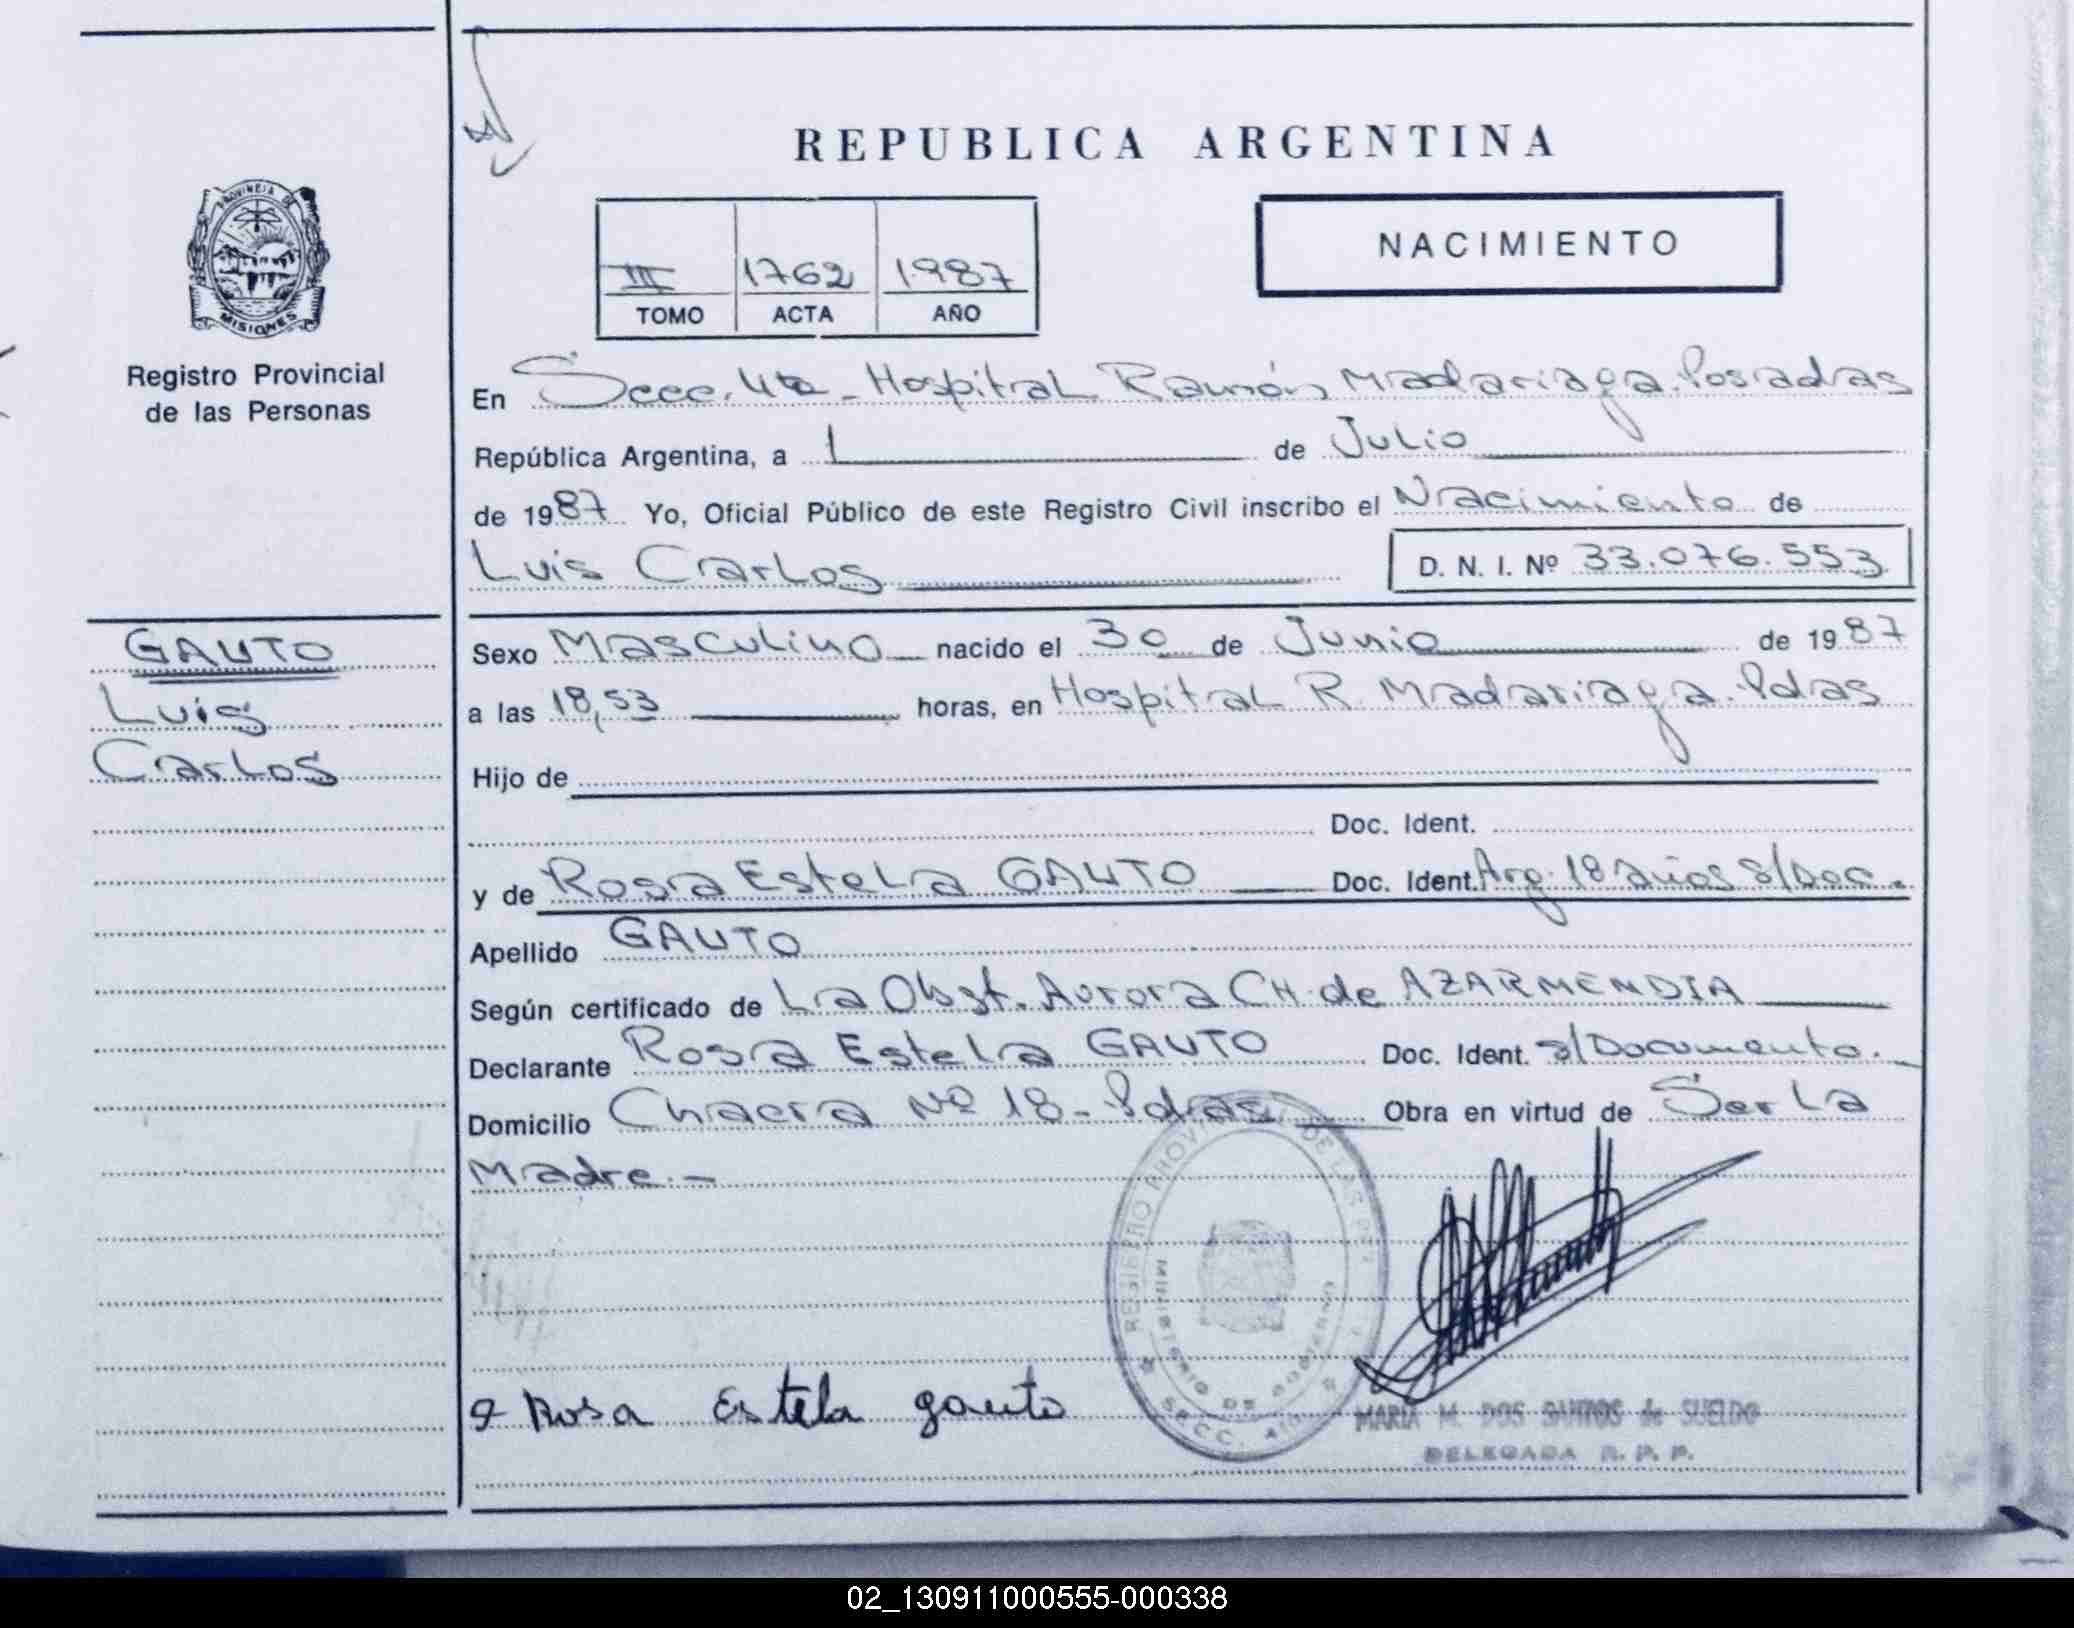 REPUBLICA ARGENTINA
NACIMIENTO
III 1762 1987
TOMO ACTA AÑO
PROVINCIA DE
MISIONES
Registro Provincial
de las Personas
GAUTO
Luis
Carlos
En Secc. 4ta - Hospital Ramón Madariaga. Posadas
República Argentina, a 1 de Julio
de 1987 Yo, Oficial Público de este Registro Civil inscribo el Nacimiento de
Luis Carlos D. N. I. Nº 33.076.553
Sexo Masculino nacido el 30 de Junio de 1987
a las 18,53 horas, en Hospital R. Madariaga. Pdas
Hijo de
Doc. Ident.
y de Rosa Estela GAUTO Doc. Ident. Arg. 18 años s/Doc.
Apellido GAUTO
Según certificado de La Obst. Aurora CH. de AZARMENDIA
Declarante Rosa Estela GAUTO Doc. Ident. s/Documento.
Domicilio Chacra Nº 18 - Pdas Obra en virtud de Ser La
Madre. -
REGISTRO PROVINCIAL DE LAS
MINISTERIO DE GOBIERNO
Rosa Estela gauto
MARIA M. DOS SANTOS de SUELDO
DELEGADA R. P. P.
02_130911000555-000338